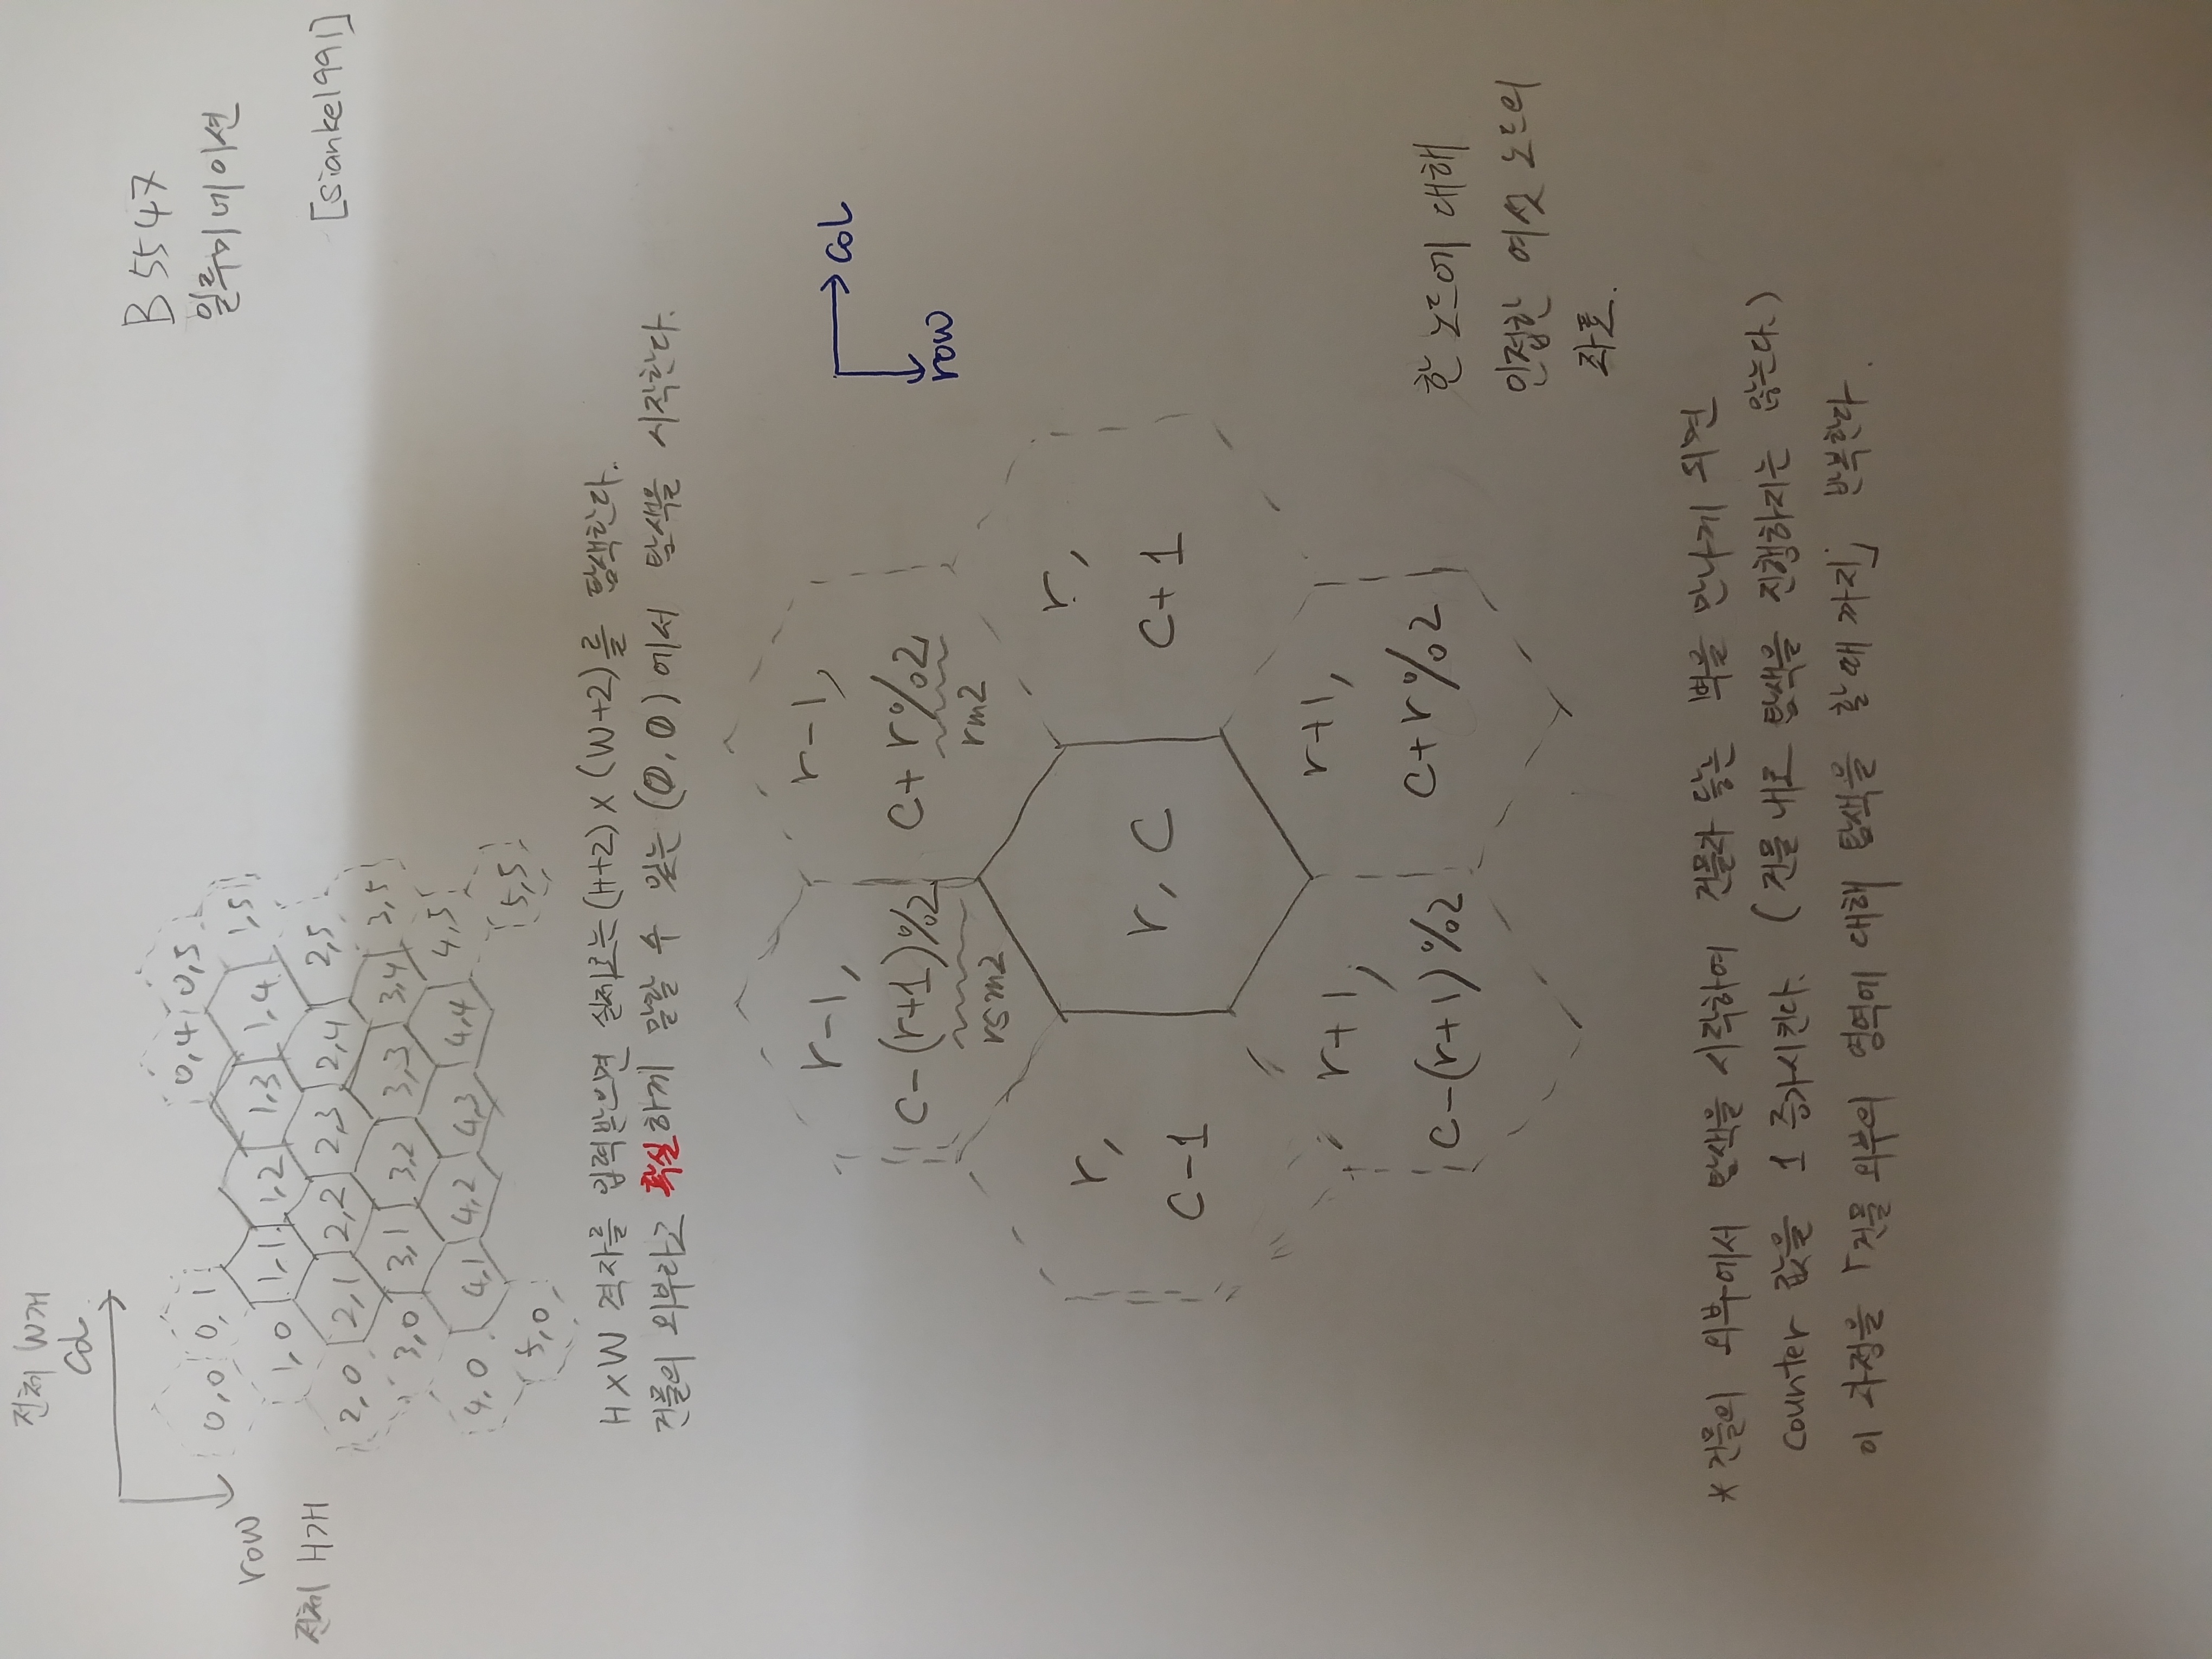 전체 W개
col
row
전체 H개
B 5547
일루미네이션
[sianke1991]
0,0 0,1 0,4 0,5
1,0 1,1 1,2 1,3 1,4 1,5
2,0 2,1 2,2 2,3 2,4 2,5
3,0 3,1 3,2 3,3 3,4 3,5
4,0 4,1 4,2 4,3 4,4 4,5
5,0 5,5
H×W 격자를 입력받으면 실제로는 (H+2) × (W+2)를 탐색한다.
건물의 외부라고 확실하게 말할 수 있는 (0, 0) 에서 탐색을 시작한다.
r-1,
c-(r+1)%2
rsm2
r-1,
c+r%2
rm2
col
row
r,
c-1
r, c
r,
c+1
r+1,
c-(r+1)%2
r+1,
c+r%2
한 노드에 대해
인접한 여섯 노드의
좌표.
* 건물의 외부에서 탐색을 시작하여 건물과 닿는 벽을 만나게 되면
counter 값을 1 증가시킨다. (건물 내로 탐색을 진행하지는 않는다.)
이 과정을 「건물 외부의 영역에 대해 탐색을 할 때 까지」 반복한다.